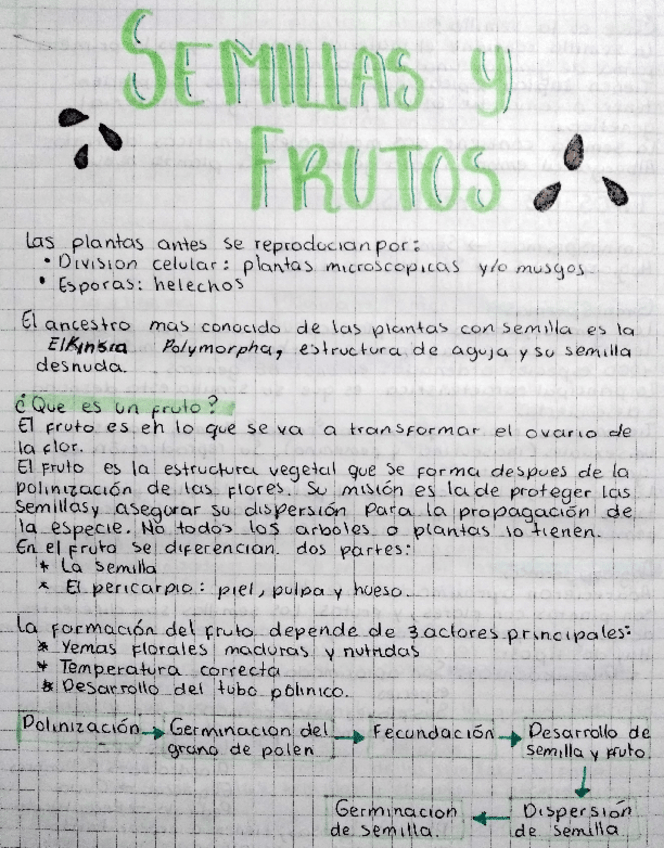 SEMILLAS y
FRUTOS
Las plantas antes se reproducian por:
• Division celular: plantas microscopicas y/o musgos
• Esporas: helechos
El ancestro mas conocido de las plantas con semilla es la
Elkinsia Polymorpha, estructura de aguja y su semilla
desnuda.
¿Que es un fruto?
El fruto es en lo que se va a transformar el ovario de
la flor.
El fruto es la estructura vegetal que se forma despues de la
polinización de las flores. Su misión es la de proteger las
semillas y asegurar su dispersión para la propagación de
la especie. No todos los arboles o plantas lo tienen.
En el fruto se diferencian dos partes:
* La semilla
* El pericarpio: piel, pulpa y hueso.
La formación del fruto depende de 3 actores principales:
* Yemas florales maduras y nutridas
* Temperatura correcta
* Desarrollo del tubo polinico.
Polinización → Germinacion del → Fecundación → Desarrollo de
grano de polen semilla y fruto
Germinacion ← Dispersión
de semilla. de semilla